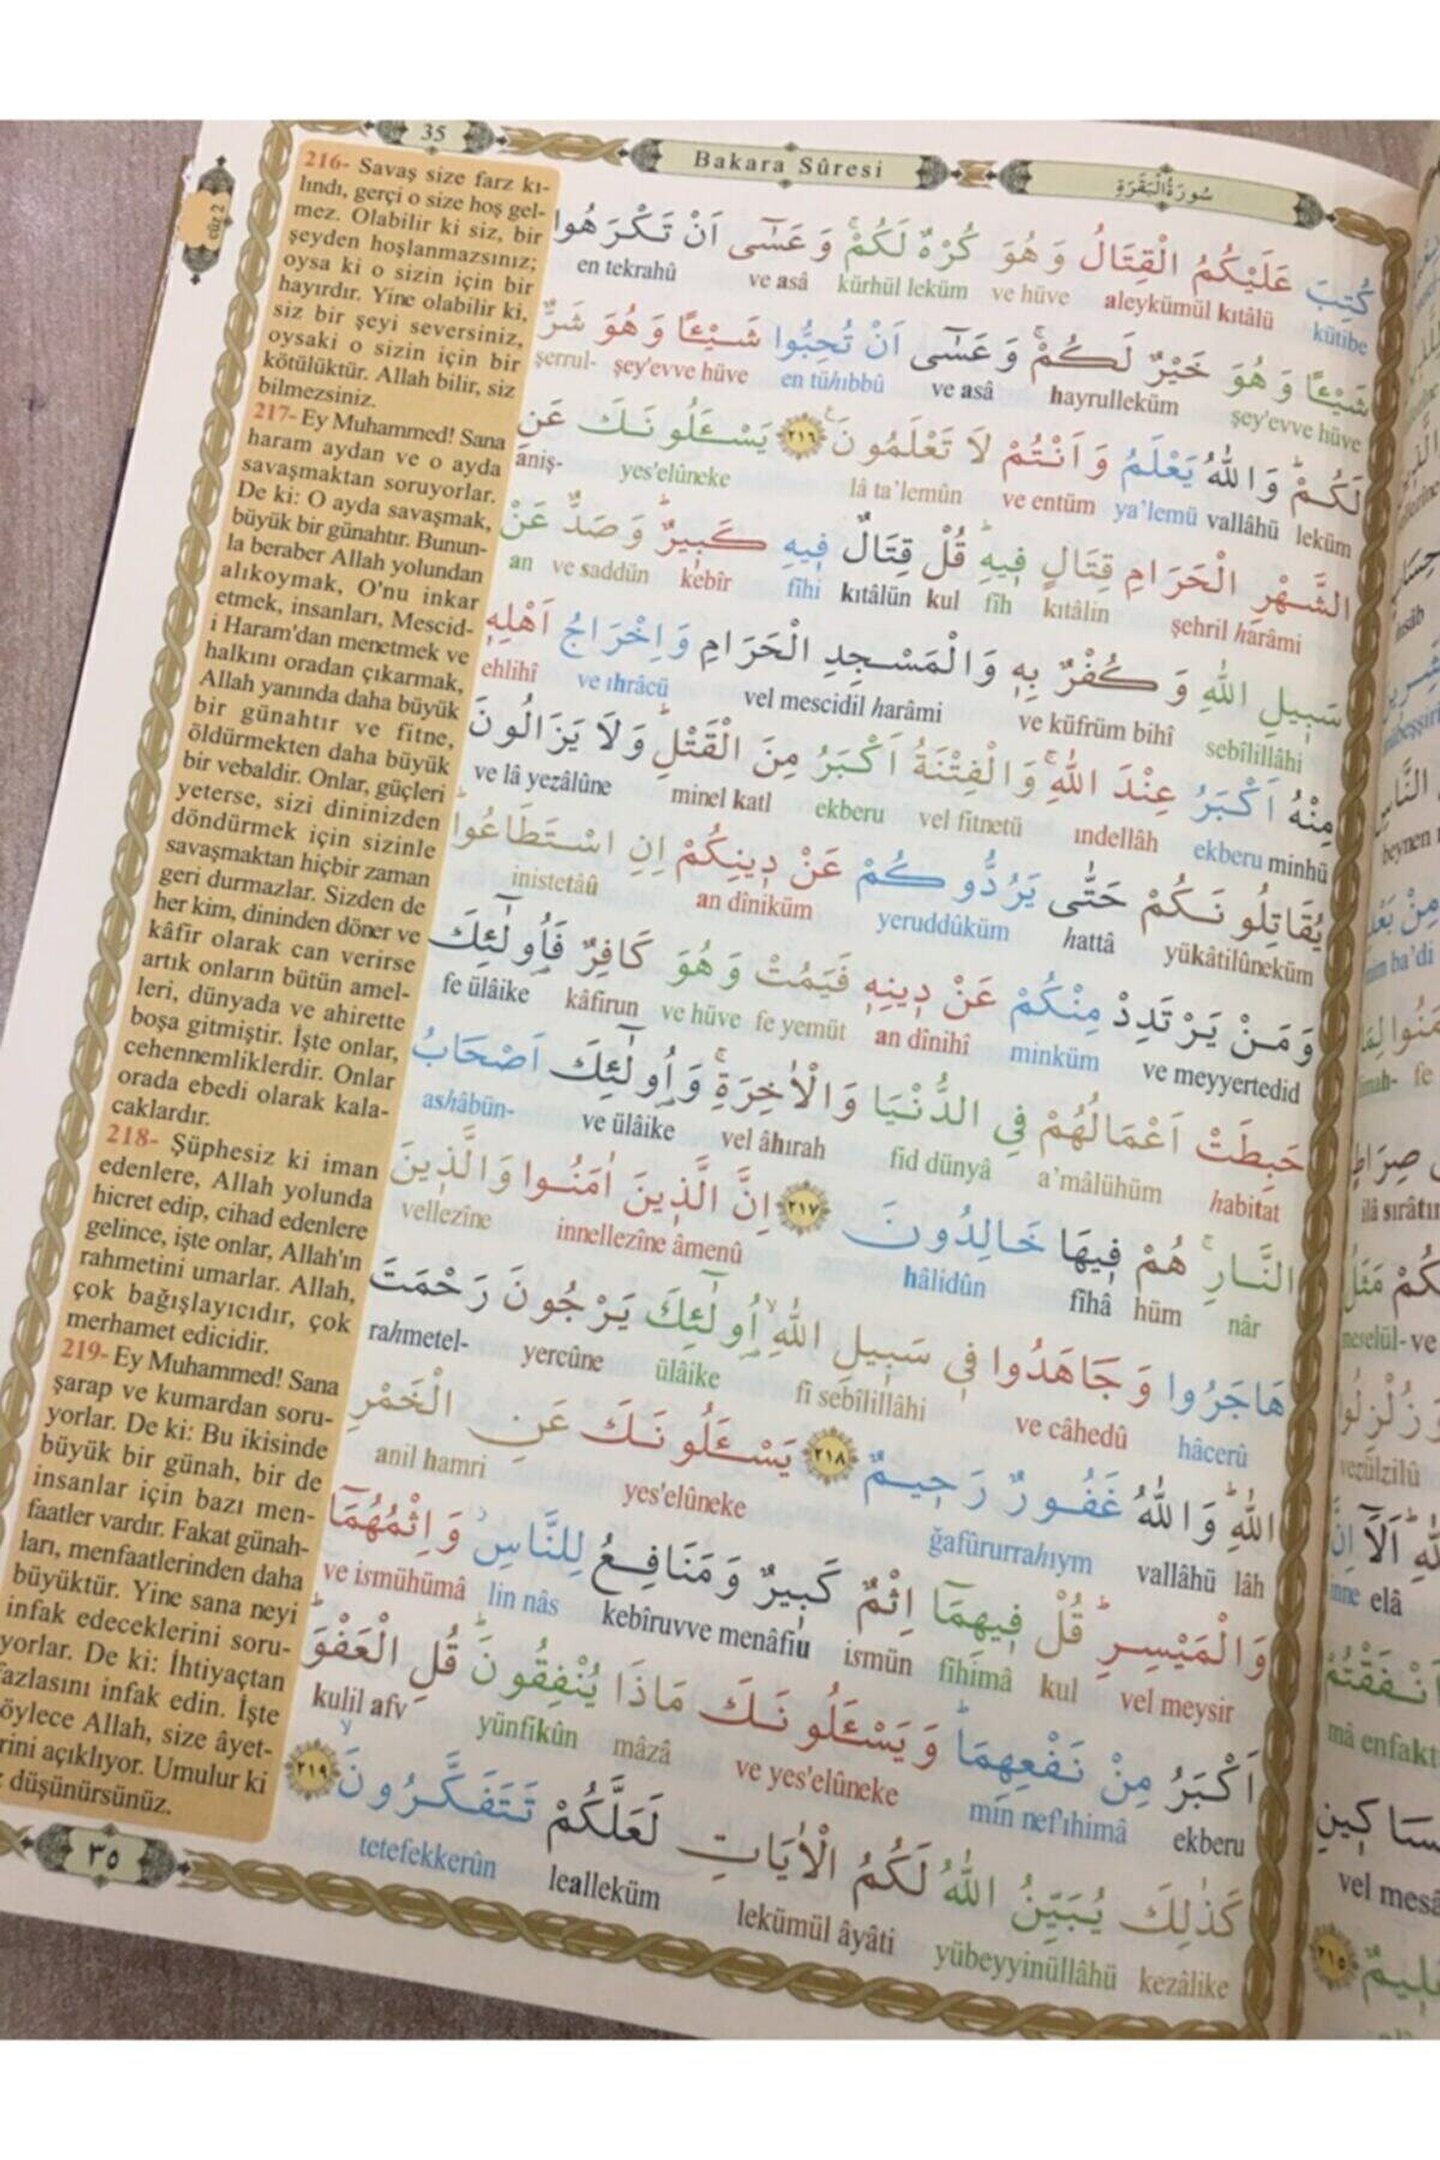 35
Bakara Sûresi
سُورَةُ الْبَقَرَةِ
cüz 2
216- Savaş size farz kı-
lındı, gerçi o size hoş gel-
mez. Olabilir ki siz, bir
şeyden hoşlanmazsınız;
oysa ki o sizin için bir
hayırdır. Yine olabilir ki,
siz bir şeyi seversiniz,
oysaki o sizin için bir
kötülüktür. Allah bilir, siz
bilmezsiniz.
217- Ey Muhammed! Sana
haram aydan ve o ayda
savaşmaktan soruyorlar.
De ki: O ayda savaşmak,
büyük bir günahtır. Bunun-
la beraber Allah yolundan
alıkoymak, O'nu inkar
etmek, insanları, Mescid-
i Haram'dan menetmek ve
halkını oradan çıkarmak,
Allah yanında daha büyük
bir günahtır ve fitne,
öldürmekten daha büyük
bir vebaldir. Onlar, güçleri
yeterse, sizi dininizden
döndürmek için sizinle
savaşmaktan hiçbir zaman
geri durmazlar. Sizden de
her kim, dininden döner ve
kâfir olarak can verirse
artık onların bütün amel-
leri, dünyada ve ahirette
boşa gitmiştir. İşte onlar,
cehennemliklerdir. Onlar
orada ebedi olarak kala-
caklardır.
218- Şüphesiz ki iman
edenlere, Allah yolunda
hicret edip, cihad edenlere
gelince, işte onlar, Allah'ın
rahmetini umarlar. Allah,
çok bağışlayıcıdır, çok
merhamet edicidir.
219- Ey Muhammed! Sana
şarap ve kumardan soru-
yorlar. De ki: Bu ikisinde
büyük bir günah, bir de
insanlar için bazı men-
faatler vardır. Fakat günah-
ları, menfaatlerinden daha
büyüktür. Yine sana neyi
infak edeceklerini soru-
yorlar. De ki: İhtiyaçtan
fazlasını infak edin. İşte
öylece Allah, size âyet-
rini açıklıyor. Umulur ki
düşünürsünüz.
كُتِبَ عَلَيْكُمُ الْقِتَالُ وَهُوَ كُرْهٌ لَكُمْۚ وَعَسٰٓى اَنْ تَكْرَهُوا
kütibe aleykümül kıtâlü ve hüve kürhül leküm ve asâ en tekrahû
شَيْـًٔا وَهُوَ خَيْرٌ لَكُمْۚ وَعَسٰٓى اَنْ تُحِبُّوا شَيْـًٔا وَهُوَ شَرٌّ
şey'evve hüve hayrulleküm ve asâ en tühıbbû şey'evve hüve şerrul-
لَكُمْۜ وَاللّٰهُ يَعْلَمُ وَاَنْتُمْ لَا تَعْلَمُونَ۟ ﴿٢١٦﴾ يَسْـَٔلُونَكَ عَنِ
leküm vallâhü ya'lemü ve entüm lâ ta'lemûn yes'elûneke aniş-
الشَّهْرِ الْحَرَامِ قِتَالٍ ف۪يهِۜ قُلْ قِتَالٌ ف۪يهِ كَب۪يرٌۜ وَصَدٌّ عَنْ
şehril harâmi kıtâlin fîh kul kıtâlün fîhi kebîr ve saddün an
سَب۪يلِ اللّٰهِ وَكُفْرٌ بِه۪ وَالْمَسْجِدِ الْحَرَامِ وَاِخْرَاجُ اَهْلِه۪
sebîlillâhi ve küfrüm bihî vel mescidil harâmi ve ıhrâcü ehlihî
مِنْهُ اَكْبَرُ عِنْدَ اللّٰهِۚ وَالْفِتْنَةُ اَكْبَرُ مِنَ الْقَتْلِۜ وَلَا يَزَالُونَ
minhü ekberu ındellâh vel fitnetü ekberu minel katl ve lâ yezâlûne
يُقَاتِلُونَكُمْ حَتّٰى يَرُدُّوكُمْ عَنْ د۪ينِكُمْ اِنِ اسْتَطَاعُواۜ
yükâtilûneküm hattâ yeruddûküm an dîniküm inistetâû
وَمَنْ يَرْتَدِدْ مِنْكُمْ عَنْ د۪ينِه۪ فَيَمُتْ وَهُوَ كَافِرٌ فَاُو۬لٰٓئِكَ
ve meyyertedid minküm an dînihî fe yemüt ve hüve kâfirun fe ülâike
حَبِطَتْ اَعْمَالُهُمْ فِي الدُّنْيَا وَالْاٰخِرَةِۚ وَاُو۬لٰٓئِكَ اَصْحَابُ
habitat a'mâlühüm fid dünyâ vel âhırah ve ülâike ashâbün-
النَّارِۚ هُمْ ف۪يهَا خَالِدُونَ ﴿٢١٧﴾ اِنَّ الَّذ۪ينَ اٰمَنُوا وَالَّذ۪ينَ
nâr hüm fîhâ hâlidûn innellezîne âmenû vellezîne
هَاجَرُوا وَجَاهَدُوا ف۪ي سَب۪يلِ اللّٰهِۙ اُو۬لٰٓئِكَ يَرْجُونَ رَحْمَتَ
hâcerû ve câhedû fî sebîlillâhi ülâike yercûne rahmetel-
اللّٰهِۜ وَاللّٰهُ غَفُورٌ رَح۪يمٌ ﴿٢١٨﴾ يَسْـَٔلُونَكَ عَنِ الْخَمْرِ
lâh vallâhü ğafûrurrahıym yes'elûneke anil hamri
وَالْمَيْسِرِۜ قُلْ ف۪يهِمَٓا اِثْمٌ كَب۪يرٌ وَمَنَافِعُ لِلنَّاسِۘ وَاِثْمُهُمَٓا
vel meysir kul fîhimâ ismün kebîruvve menâfiu lin nâs ve ismühümâ
اَكْبَرُ مِنْ نَفْعِهِمَاۜ وَيَسْـَٔلُونَكَ مَاذَا يُنْفِقُونَۜ قُلِ الْعَفْوَۜ
ekberu min nef'ıhimâ ve yes'elûneke mâzâ yünfikûn kulil afv
كَذٰلِكَ يُبَيِّنُ اللّٰهُ لَكُمُ الْاٰيَاتِ لَعَلَّكُمْ تَتَفَكَّرُونَۙ ﴿٢١٩﴾
kezâlike yübeyyinüllâhü lekümül âyâti lealleküm tetefekkerûn
٣٥